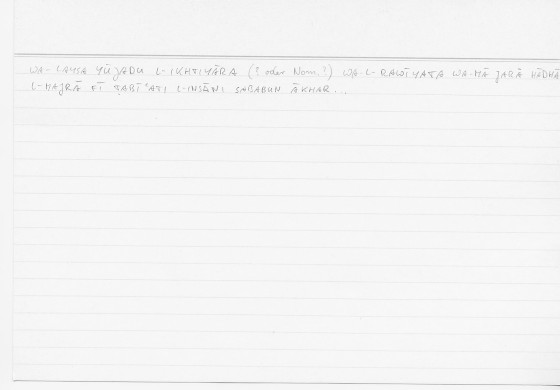 WA-LAYSA YŪJADU L-IKHTIYĀRA (? oder Nom.?) WA-L-RAWĪYATA WA-MĀ JARĀ HĀDHĀ
L-MAJRĀ FĪ ṬABĪʿATI L-INSĀNI SABABUN ĀKHAR...